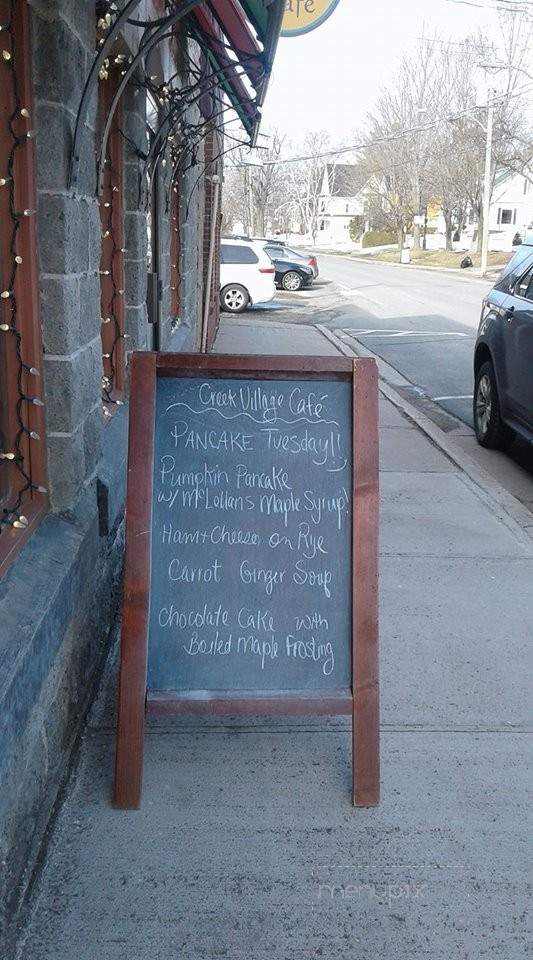 afe
Creek Village Café
PANCAKE Tuesday!!
Pumpkin Pancake
w/ McLellans Maple Syrup!
Ham + Cheese on Rye
Carrot Ginger Soup
Chocolate Cake with
Boiled Maple Frosting
menupix